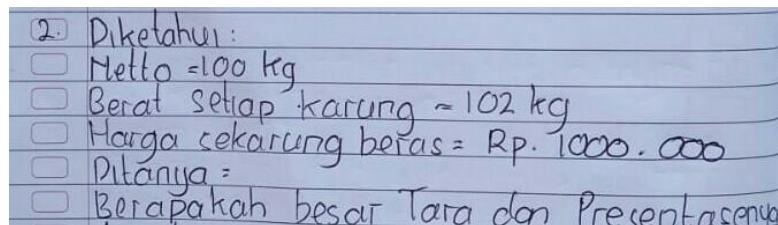 2. Diketahui:
Netto = 100 kg
Berat setiap karung = 102 kg
Harga sekarung beras = Rp. 1000.000
Ditanya =
Berapakah besar Tara dan Presentasenya